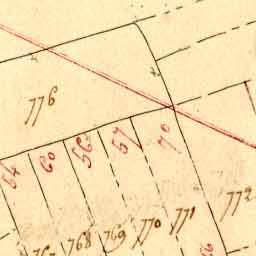 776
64
60
56
67
70
768
769
770
771
772